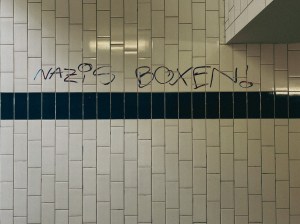 NAZIS BOXEN!